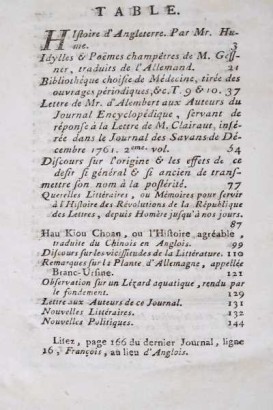 TABLE.
HIstoire d'Angleterre. Par Mr. Hu-
me. 3
Idylles & Poëmes champêtres de M. Gess-
ner, traduits de l'Allemand. 21
Bibliothèque choisie de Médecine, tirée des
ouvrages périodiques, &c. T. 9 & 10. 37
Lettre de Mr. d'Alembert aux Auteurs du
Journal Encyclopédique, servant de
réponse à la Lettre de M. Clairaut, insé-
rée dans le Journal des Savans de Dé-
cembre 1761. 2me. vol. 54
Discours sur l'origine & les effets de ce
desir si général & si ancien de trans-
mettre son nom à la postérité. 77
Querelles Littéraires, ou Mémoires pour servir
à l'Histoire des Révolutions de la République
des Lettres, depuis Homère jusqu'à nos jours.
87
Hau Kiou Choan, ou l'Histoire agréable,
traduite du Chinois en Anglois. 99
Discours sur les vicissitudes de la Littérature. 110
Remarques sur la Plante d'Allemagne, appellée
Branc-Ursine. 121
Observation sur un Lézard aquatique, rendu par
le fondement. 129
Lettre aux Auteurs de ce Journal. 131
Nouvelles Littéraires. 132
Nouvelles Politiques. 144
Lisez, page 166 du dernier Journal, ligne
16, François, au lieu d'Anglois.